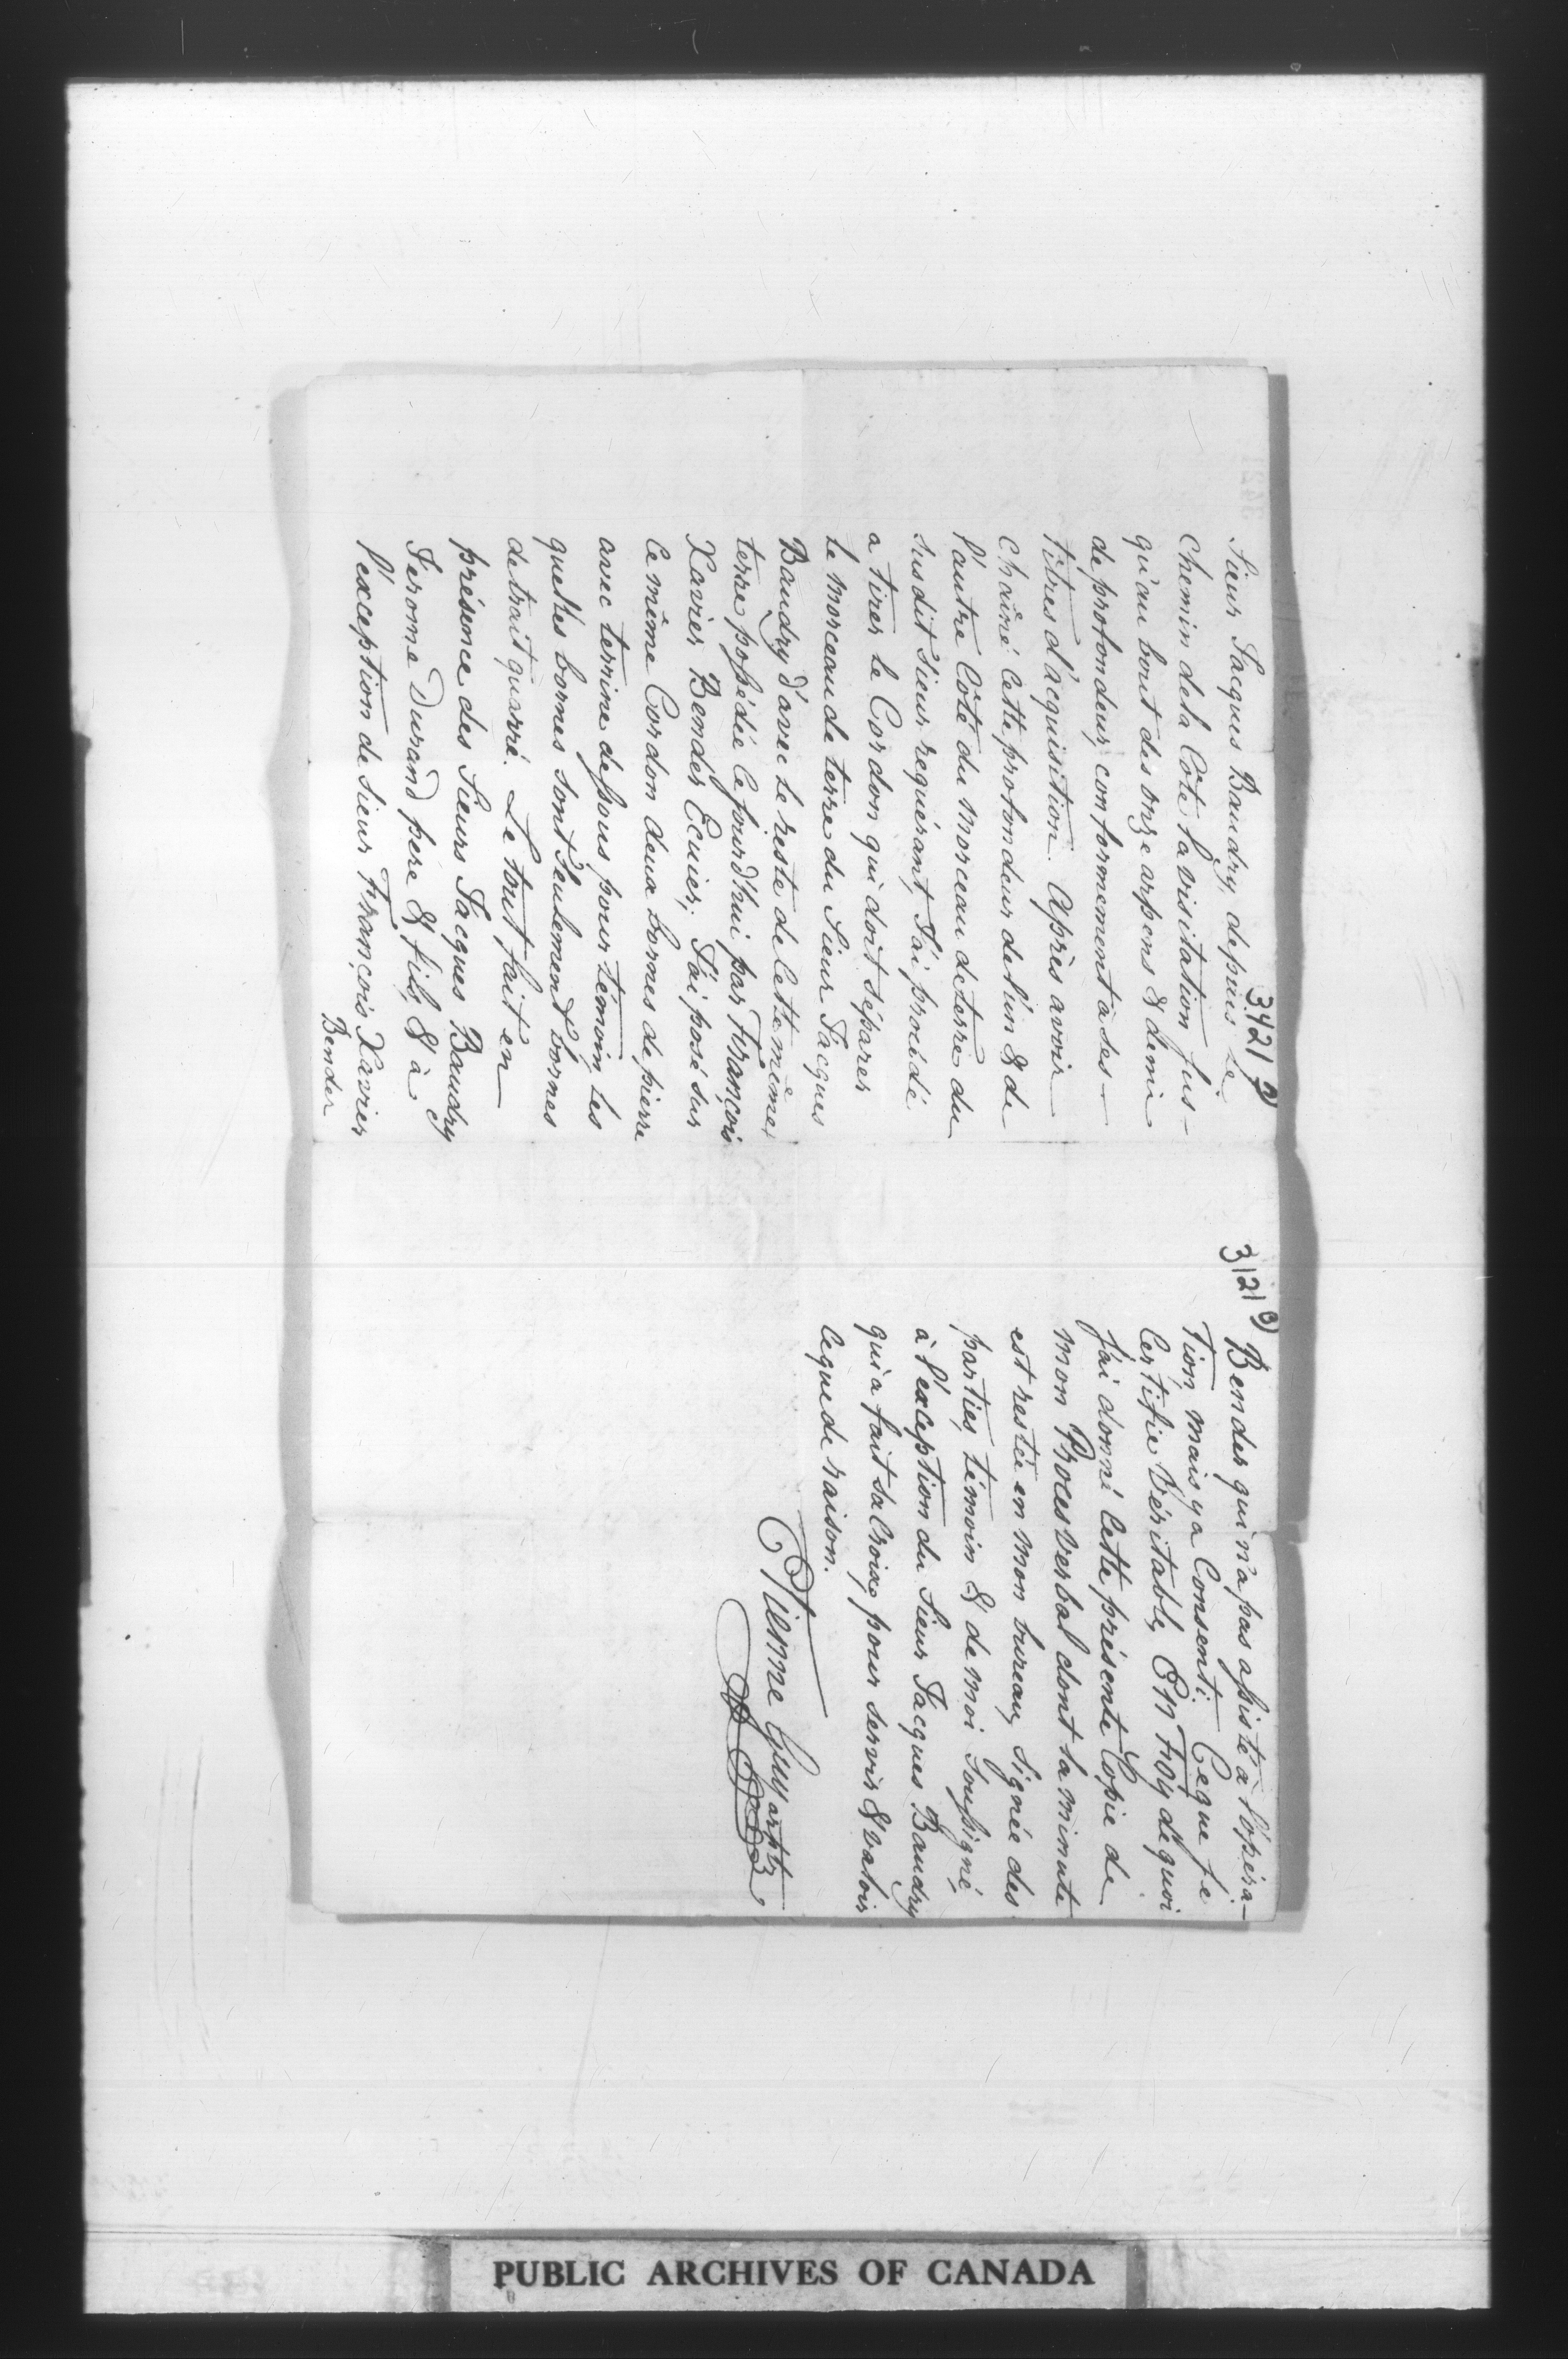 3421
Sieur Jacques Baudry, depuis le
Chemin de la Côte la visitation jus-
qu'au bout des onze arpens & demie
de profondeur, conformement à ses
titres d'acquisition. Après avoir
chaîné cette profondeur de l'un & de
l'autre Côté du morceau de terre du
susdit sieur requérant, J'ai procédé
a tirer le Cordon qui doit séparer
le morceau de terre du Sieur Jacques
Baudry d'avec le reste de cette même
terre possédée ce jourd'hui par François
Xavier Bender Ecuier; J'ai posé sur
ce même Cordon deux bornes de pierre
avec terrine dessous pour témoin, les
quelles bornes sont seulement bornes
de trait quarré. Le tout fait en
présence des Sieurs Jacques Baudry
Jerome Durand père & fils, & à
l'exception de Sieur François Xavier
Bender
3121
Bender qui n'a pas assisté à l'opéra-
tion, mais y a Consenti. Ce que je
Certifie Véritable, EN FOY de quoi
j'ai donné cette présente Copie de
mon Procès Verbal dont la minute
est restée en mon bureau, signée des
parties, témoin & de moi Soussigné,
à l'exception du Sieur Jacques Baudry
qui a fait sa Croix, pour servir & valoir
ce que de raison.
Etienne Guy arptr
PUBLIC ARCHIVES OF CANADA